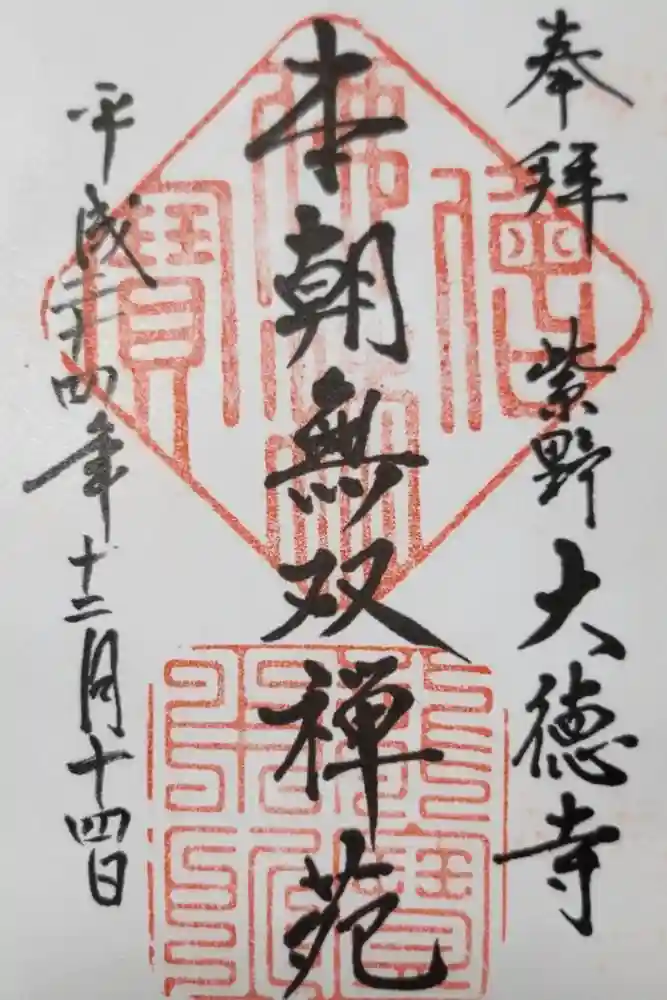 奉拜 紫野大徳寺
本朝無双禅苑
平成二十四年十二月十四日